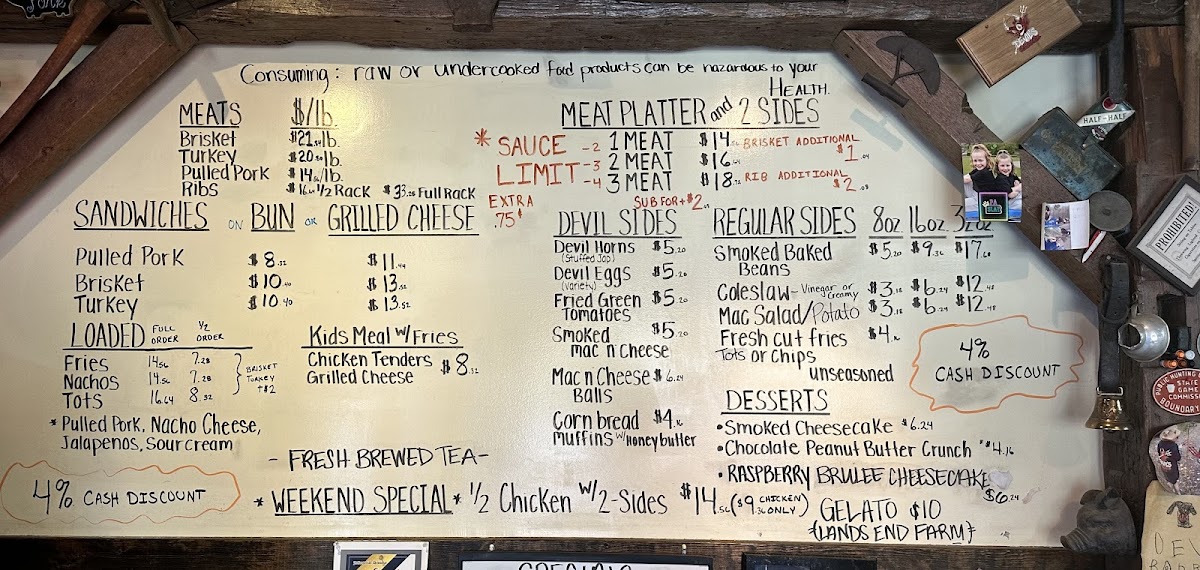 Consuming: raw or undercooked food products can be hazardous to your
HEALTH.
MEATS $/lb.
Brisket
Turkey
Pulled Pork
Ribs $33.28 Full Rack
1/2 Rack
MEAT PLATTER and 2 SIDES
* SAUCE LIMIT
-2 1 MEAT $14.56
-3 2 MEAT $16.64
-4 3 MEAT $18.72
BRISKET ADDITIONAL $1.04
RIB ADDITIONAL $2.08
EXTRA .75¢
SUB FOR + $2
SANDWICHES ON BUN OR GRILLED CHEESE
Pulled Pork $8.32 $11.44
Brisket $10.40 $13.52
Turkey $10.40 $13.52
LOADED FULL ORDER 1/2 ORDER
Fries 14.56 7.28
Nachos 14.56 7.28
Tots 16.64 8.32
BRISKET
TURKEY
+$2
* Pulled Pork, Nacho Cheese,
Jalapenos, Sour cream
Kids Meal w/ Fries
Chicken Tenders
Grilled Cheese
$8.32
DEVIL SIDES
Devil Horns $5.20
(Stuffed Jap)
Devil Eggs $5.20
(variety)
Fried Green $5.20
Tomatoes
Smoked $5.20
mac n cheese
Mac n Cheese $6.24
Balls
Corn bread $4.16
muffins w/ honey butter
REGULAR SIDES 8oz 16oz 32oz
Smoked Baked $5.20 $9.36 $17.68
Beans
Coleslaw - Vinegar or Creamy $3.18 $6.24 $12.48
Mac Salad/Potato $3.18 $6.24 $12.48
Fresh cut fries $4.16
Tots or Chips
unseasoned
4%
CASH DISCOUNT
DESSERTS
•Smoked Cheesecake $6.24
•Chocolate Peanut Butter Crunch $4.16
•RASPBERRY BRULEE CHEESECAKE
$6.24
GELATO $10
{LANDS END FARM}
- FRESH BREWED TEA -
4% CASH DISCOUNT
* WEEKEND SPECIAL * 1/2 Chicken w/ 2-Sides $14.56 ($9.36 CHICKEN ONLY)
HALF-HALF
PROHIBITED
PUBLIC HUNTING
STATE
GAME
COMMISS
BOUNDAR
SPECIALS